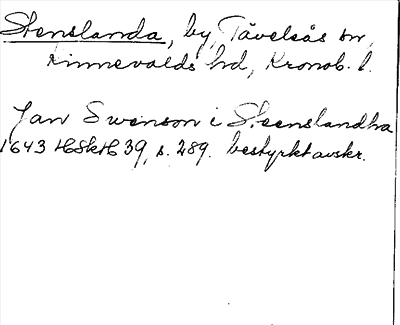 Stenslanda, by, Tävelsås sn,
Kinnevalds hd, Kronob. l.
Jan Swenson i Steenslandha
1643 HSkH 39, s. 289. bestyrkt avskr.